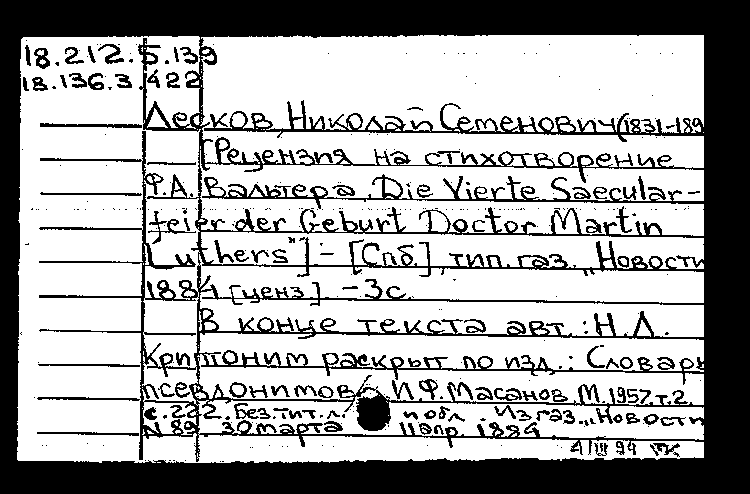 18.212.5.139
18.136.3.422
Лесков, Николай Семенович (1831-189
[Рецензия на стихотворение
Ф.А. Вальтера „Die Vierte Saecular-
feier der Geburt Doctor Martin
Luthers"] - [Спб.], тип. газ. „Новости
1884 [ценз]. - 3с.
В конце текста авт.: Н.Л.
Криптоним раскрыт по изд.: Словарь
псевдонимов И.Ф. Масанов, М. 1957. т.2.
с.222. Без тит. л. и обл. Из газ. „Новости
N 89 30 марта 11 апр. 1884
4/III 94